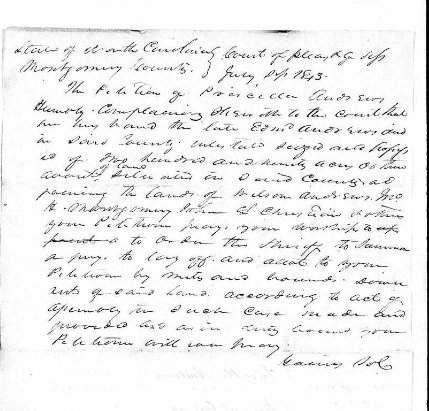 State of North Carolina } Court of pleas & qr Sess
Montgomery County. } July Sess 1843.
The Petition of Priscilla Andrews
Humbly Complaining Sheweth to the Court that
her husband the late Edmd Andrews died
in said County intestate seized and possess
ed of two hundred and ninety acres
of land situated in said County ad
joining the lands of Wilson Andrews,
Montgomery John L Christian & others
your Petitioner prays your worships to
a to order the Sheriff to Summon
a jury to lay off and allot to your
Petitioner by meets and bounds down
of said land according to act of
assembly in such case made and
provided and as in duty bound your
Petitioner will ever pray